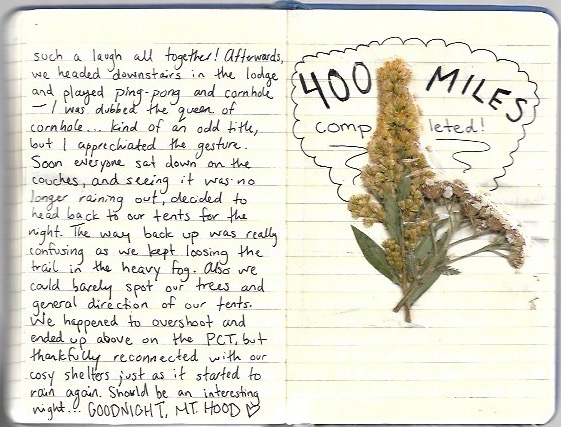 such a laugh all together! Afterwards,
we headed downstairs in the lodge
and played ping-pong and cornhole
— I was dubbed the queen of
cornhole... kind of an odd title,
but I apprechiated the gesture.
Soon everyone sat down on the
couches, and seeing it was no
longer raining out, decided to
head back to our tents for the
night. The way back up was really
confusing as we kept loosing the
trail in the heavy fog. Also we
could barely spot our trees and
general direction of our tents.
We happened to overshoot and
ended up above on the PCT, but
thankfully reconnected with our
cosy shelters just as it started to
rain again. Should be an interesting
night... GOODNIGHT, MT. HOOD ♡
400 MILES
comp leted!